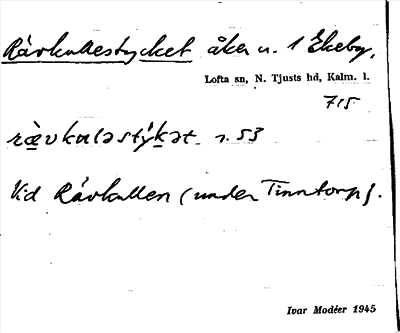 Rävkullestycket åker u. 1 Ekeby,
Lofta sn, N. Tjusts hd, Kalm. l.
715
rävkuləstýkət s. 53
Vid Rävkullen (under Tinntorp).
Ivar Modéer 1945